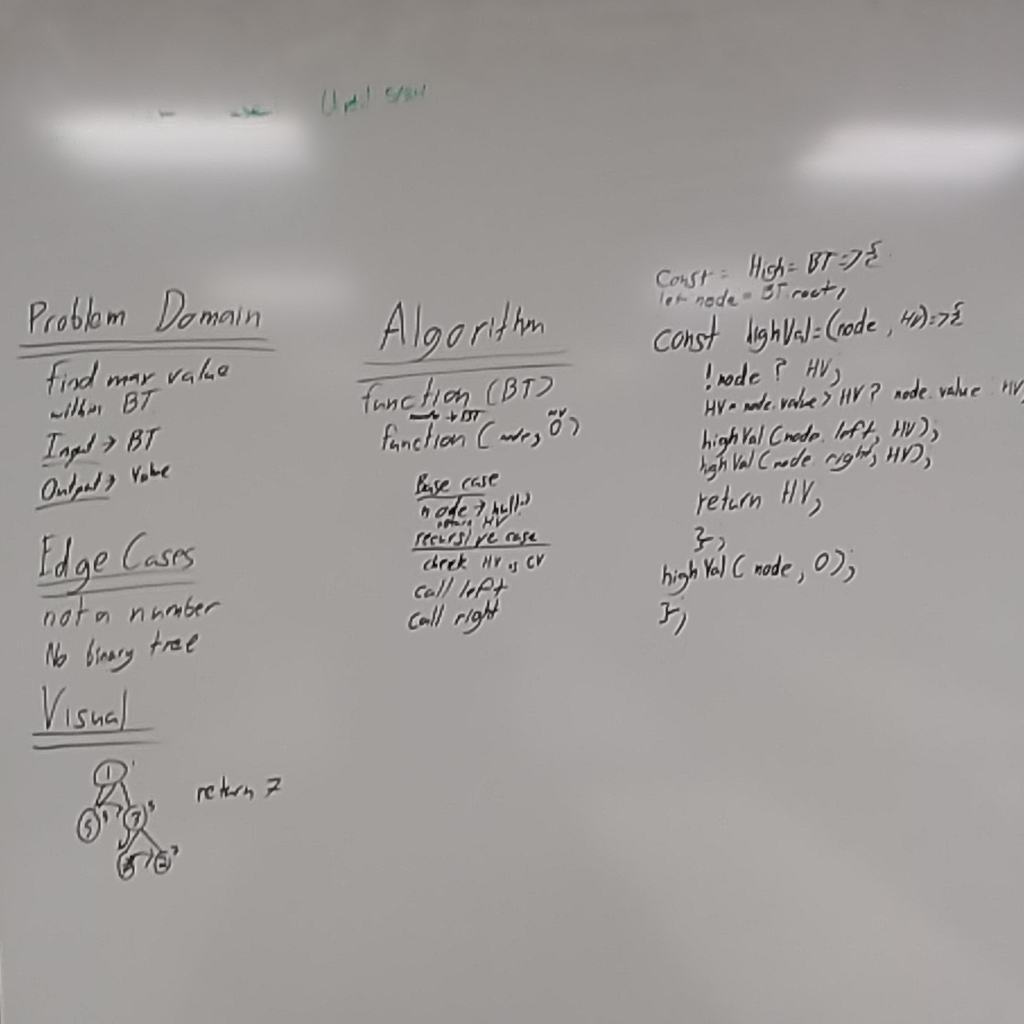 Until
Problem Domain
find max value
within BT
Input → BT
Output → Value
Edge Cases
not a number
No binary tree
Visual
1
5
return 7
Algorithm
function (BT)
function (node, 0)
HV
Base case
node → null
return HV
recursive case
check HV vs CV
call left
call right
Const = High = BT => {
let node = BT.root;
const highVal = (node, HV) => {
!node ? HV;
HV = node.value > HV ? node.value : HV;
highVal(node.left, HV);
highVal(node.right, HV);
return HV;
};
highVal(node, 0);
};